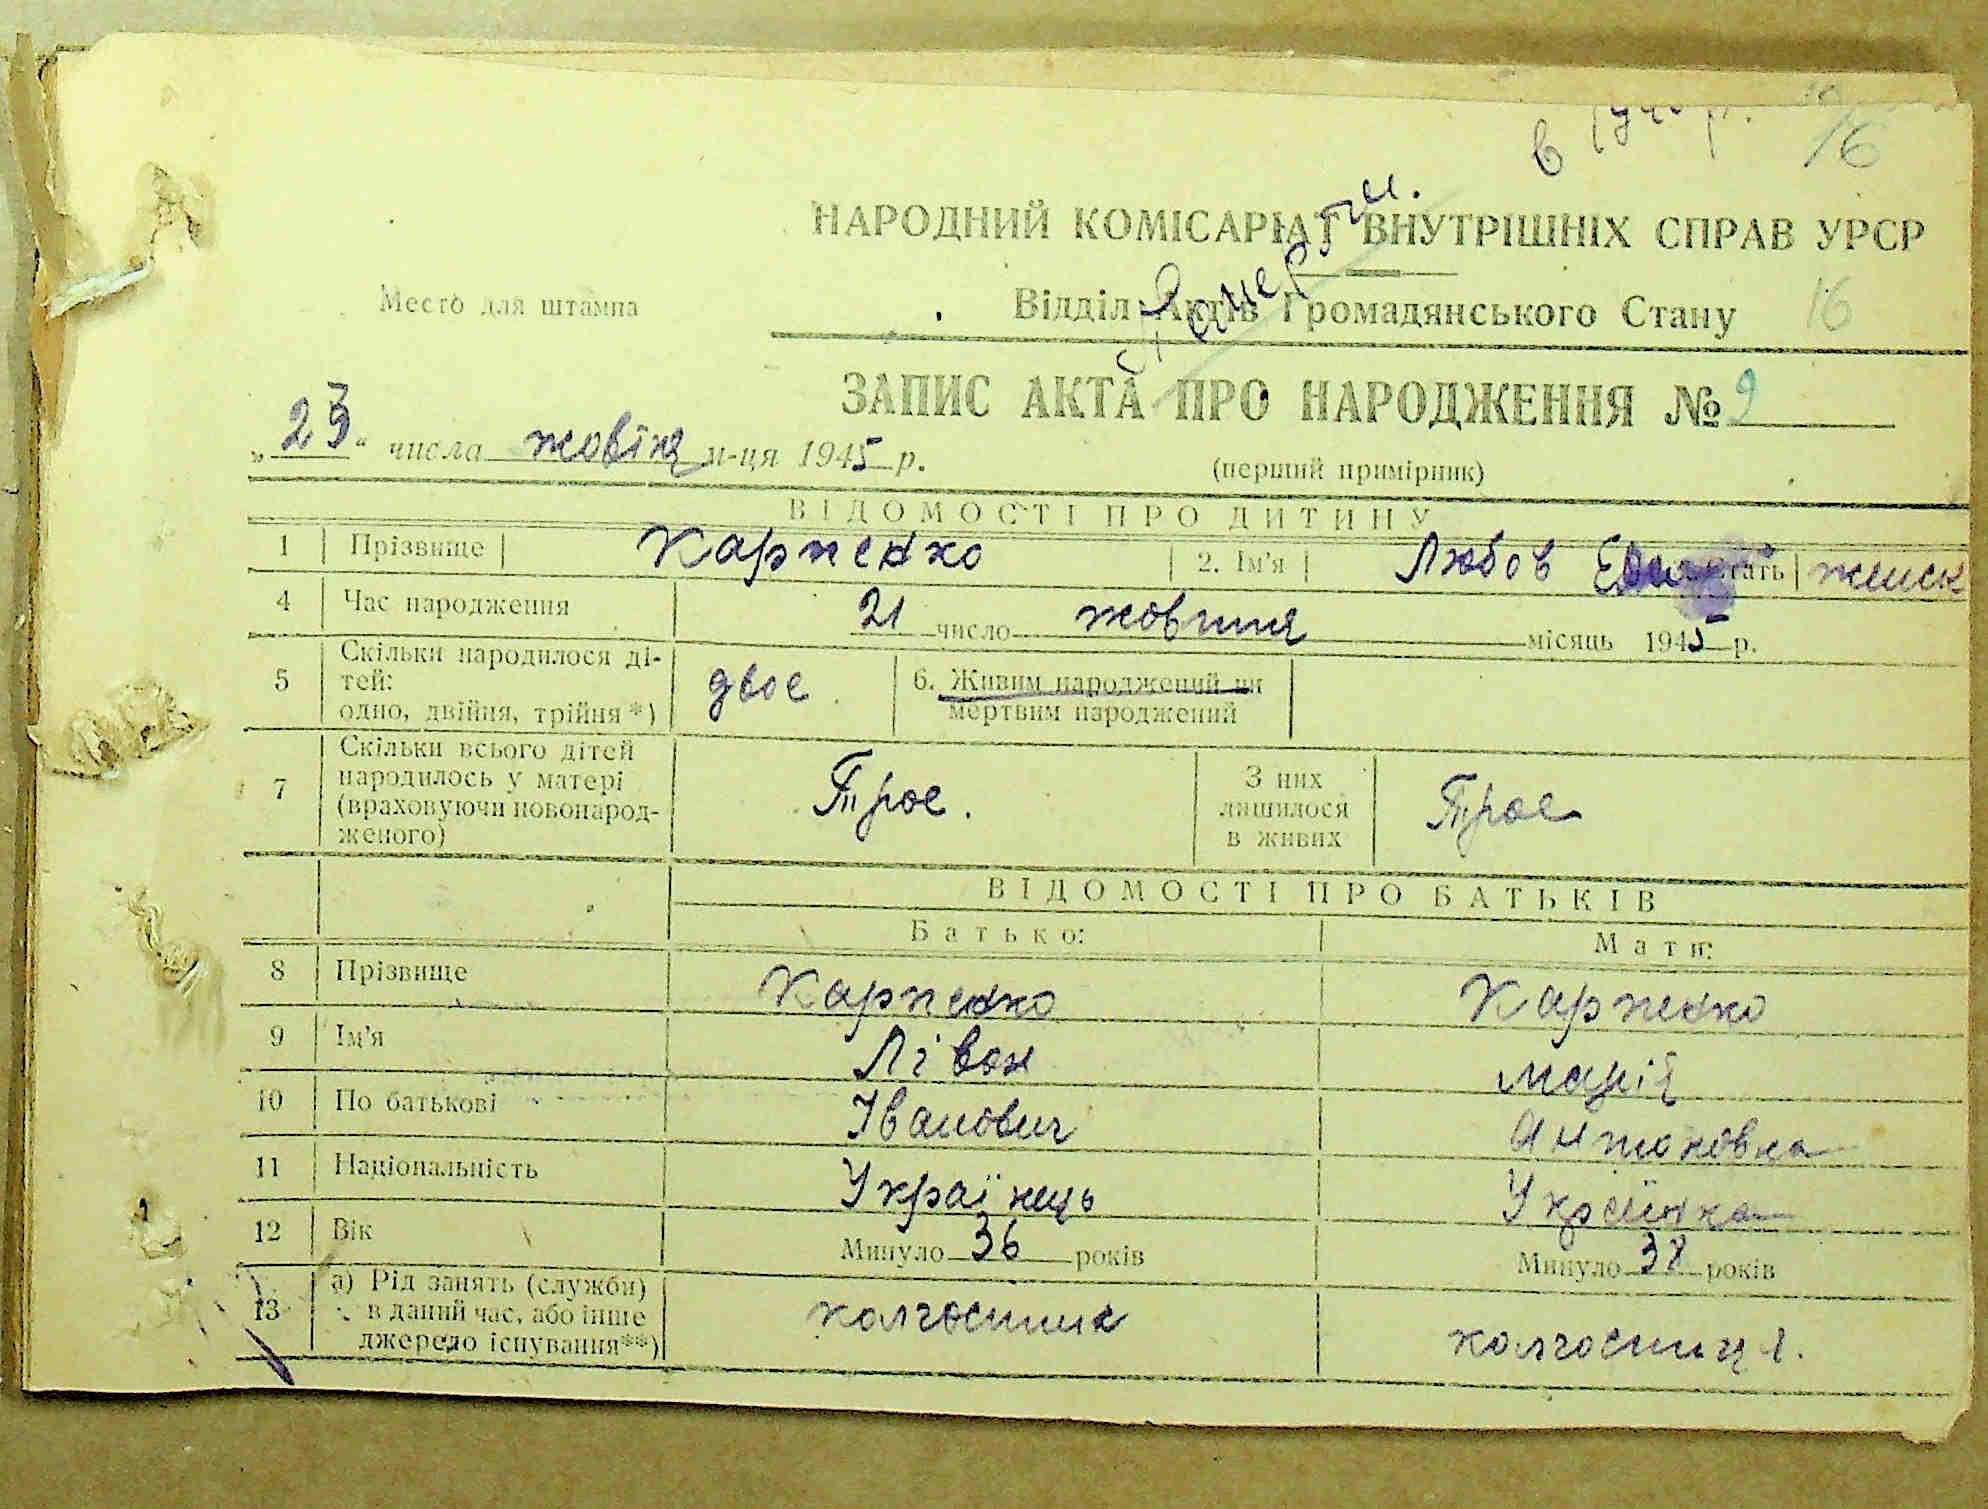 в
16
НАРОДНИЙ КОМІСАРІАТ ВНУТРІШНІХ СПРАВ УРСР
Место для штампа
Відділ Актів Громадянського Стану 16
ЗАПИС АКТА ПРО НАРОДЖЕННЯ № 9
„23“ числа жовтня м-ця 1945 р.
(перший примірник)
ВІДОМОСТІ ПРО ДИТИНУ
1 Прізвище Карпенко 2. Ім'я Любов стать женск
4 Час народження 21 число жовтня місяць 1945 р.
5 Скільки народилося дітей: одно, двійня, трійня*) двое 6. Живим народжений чи мертвим народжений
7 Скільки всього дітей народилось у матері (враховуючи новонародженого) Трое. З них лишилося в живих Трое
ВІДОМОСТІ ПРО БАТЬКІВ
Батько: Мати:
8 Прізвище Карпенко Карпенко
9 Ім'я Лівон Марія
10 По батькові Іванович Антоновна
11 Національність Українець Українка
12 Вік Минуло 36 років Минуло 38 років
13 а) Рід занять (служби) в даний час, або інше джерело існування**) колгоспник колгоспниця.